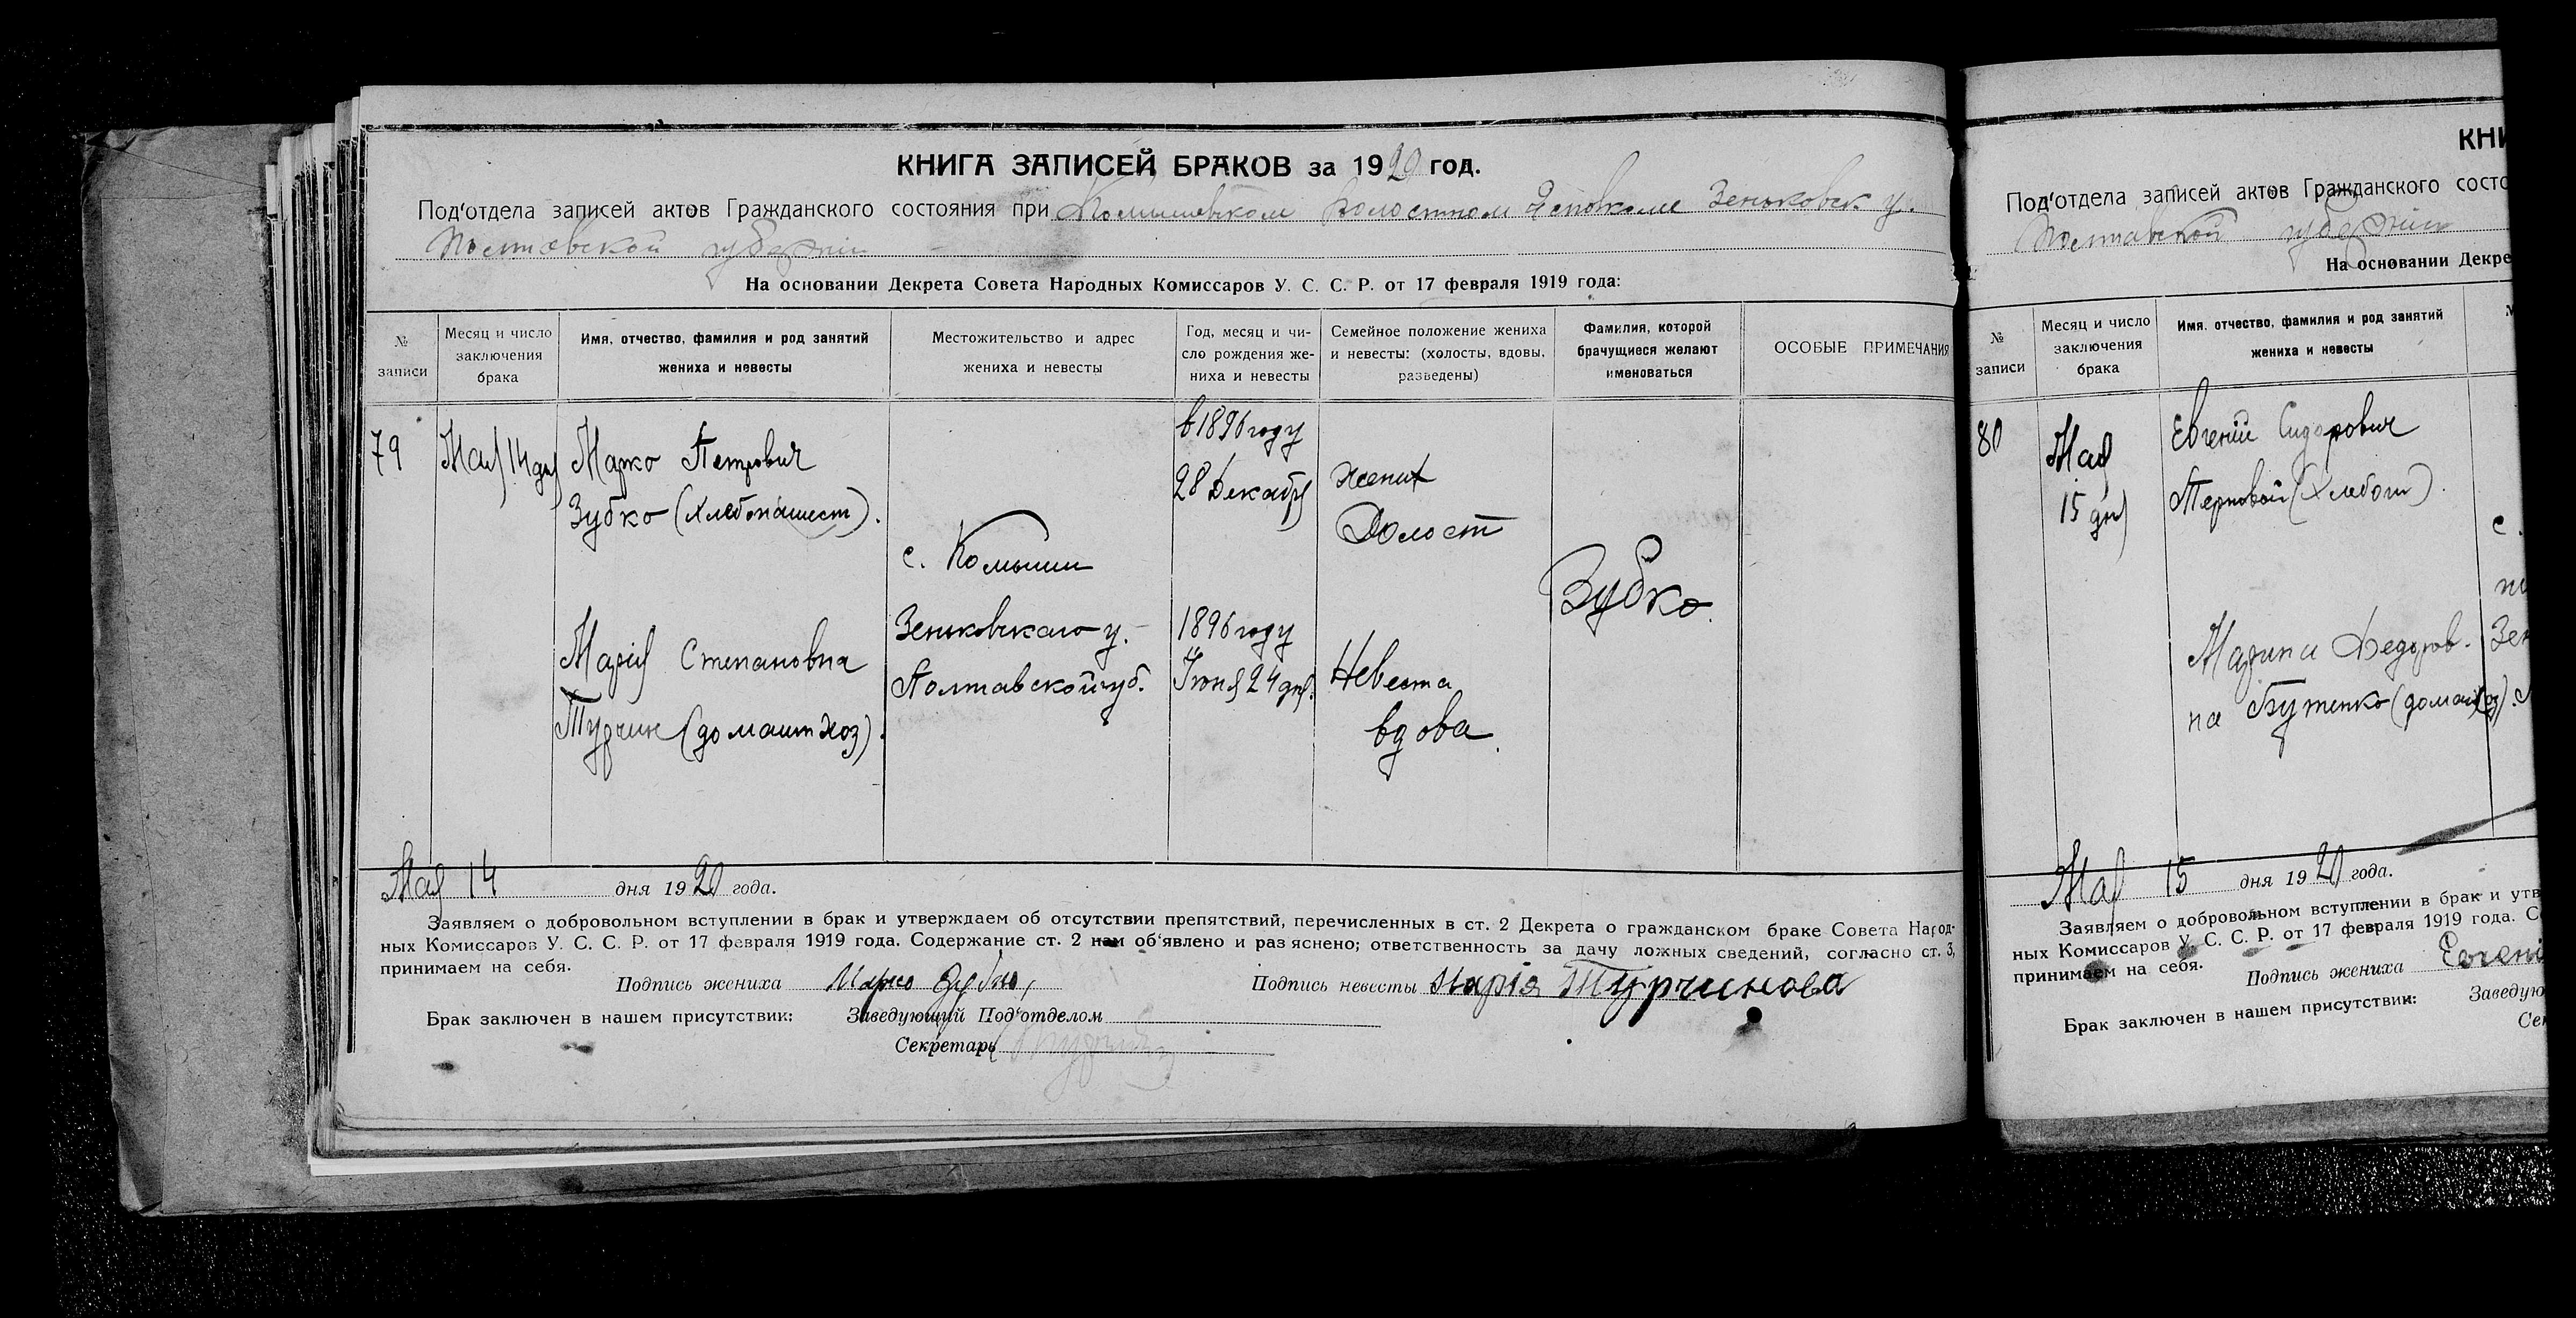 КНИГА ЗАПИСЕЙ БРАКОВ за 1920 год.
Под‘отдела записей актов Гражданского состояния при Комышевском Волостном Исполкоме Зеньковск у.
Полтавской губернии
На основании Декрета Совета Народных Комиссаров У. С. С. Р. от 17 февраля 1919 года:
№ записи
Месяц и число заключения брака
Имя, отчество, фамилия и род занятий жениха и невесты
Местожительство и адрес жениха и невесты
Год, месяц и чи-
сло рождения же-
ниха и невесты
Семейное положение жениха
и невесты: (холосты, вдовы,
разведены)
Фамилия, которой
брачущиеся желают
именоваться
ОСОБЫЕ ПРИМЕЧАНИЯ
79
Мая 14 дня
Марко Петрович
Зубко (хлебопашест).
Марія Степановна
Турчин (домашн хоз).
с. Комыши
Зеньковскаго у.
Полтавской губ.
в 1896 году
28 Декабря
1896 году
Іюня 24 дня.
жених
Холост
Невеста
вдова
Зубко.
Мая 14 дня 1920 года.
Заявляем о добровольном вступлении в брак и утверждаем об отсутствии препятствий, перечисленных в ст. 2 Декрета о гражданском браке Совета Народ-
ных Комиссаров У. С. С. Р. от 17 февраля 1919 года. Содержание ст. 2 нам об‘явлено и раз яснено; ответственность за дачу ложных сведений, согласно ст. 3,
принимаем на себя.
Подпись жениха Марко Зубко,
Подпись невесты Марія Турчинова
Брак заключен в нашем присутствии: Заведующий Под‘отделом
Секретарь
КНИ
Под‘отдела записей актов Гражданского состо
Полтавской губернии
На основании Декре
№ записи
Месяц и число заключения брака
Имя, отчество, фамилия и род занятий жениха и невесты
80
Мая
15 дня
Евгеній Сидорович
Терновой (хлебоп).
Марина Федоров-
на Бутенко (домаш хоз).
с.
Зен
Мая 15 дня 1920 года.
Заявляем о добровольном вступлении в брак и утв
ных Комиссаров У. С. С. Р. от 17 февраля 1919 года. С
принимаем на себя.
Подпись жениха Евгени
Брак заключен в нашем присутствии: Заведую
Сек